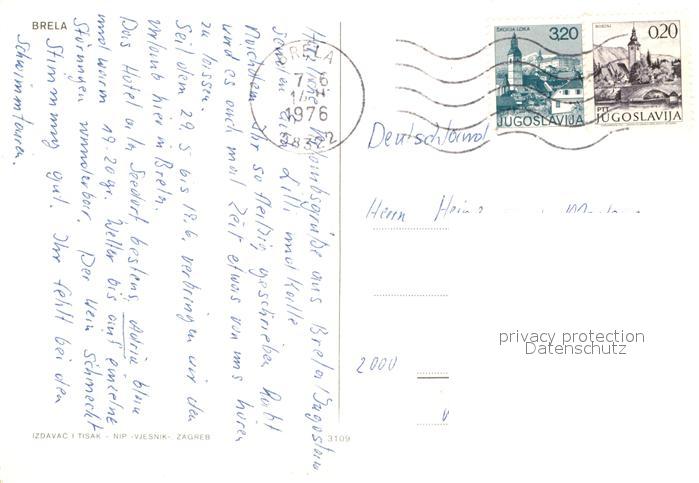 BRELA
Herzliche Urlaubsgrüße aus Brela/Jugoslawien
senden Euch Lilli und Kalle
Nachdem Ihr so fleißig geschrieben habt
wird es auch mal Zeit etwas von uns hören
zu lassen.
Seit dem 29.5 bis 19.6. verbringen wir den
Urlaub hier in Brela.
Das Hotel a la Seedorf bestens, Adria blau
und warm 19-20gr. Wetter bis auf einzelne
Störungen wunderbar. Der Wein schmeckt
Stimmung gut. Ihr fehlt bei den
Schwimmtouren.
IZDAVAČ I TISAK - NIP «VJESNIK» ZAGREB
3109
BRELA
7-6
1976
ŠKOFJA LOKA
3,20
JUGOSLAVIJA
0,20
PTT
JUGOSLAVIJA
Deutschland
Herrn
2000
privacy protection
Datenschutz